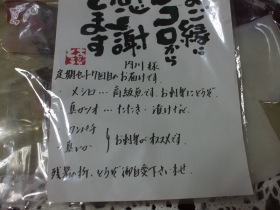 ご縁に
ココロから
感謝
します
円川様
定期セット7回目のお届けです。
・メジロ… 高級魚です。お刺身にどうぞ
・真ガツオ… たたき・漬けなど
・カンパチ
・真ダコ お刺身がオススメです。
残暑の折、どうぞ御自愛下さいませ